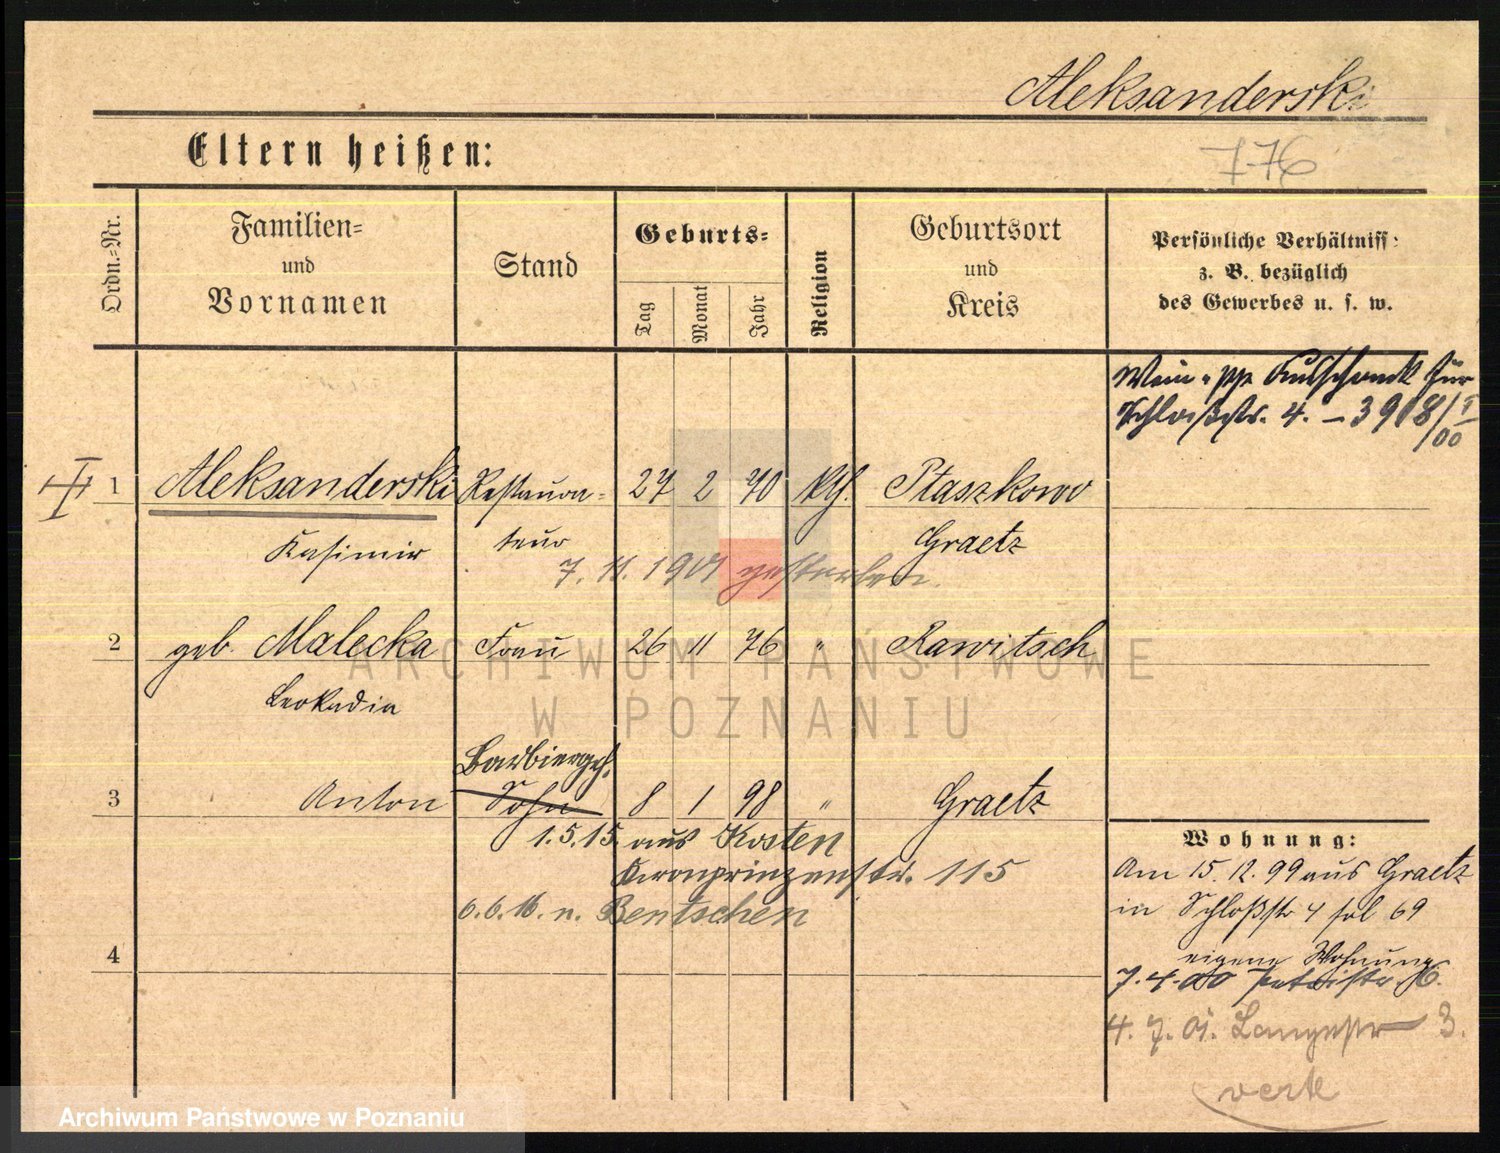 Aleksanderski
Eltern heißen:
776
Ordn.-Nr.
Familien-
und
Vornamen
Stand
Geburts-
Tag
Monat
Jahr
Religion
Geburtsort
und
Kreis
Persönliche Verhältniss:
z. B. bezüglich
des Gewerbes u. s. w.
Wein- pp Ausschank für
Schloßstr. 4. – 3908/
00
1 Aleksanderski Restaura- 27 2 70 kth. Ptaszkowo
Kasimir teur Graetz
7. 11. 1901 gestorben.
2 geb Malecka Frau 26 11 76 " Rawitsch
Leokadia
Barbiergeh.
3 Anton Sohn 8 1 98 " Graetz
1.5.15. aus Kosten
Kronprinzenstr. 115
6.6.16. n. Bentschen
4
Wohnung:
Am 15. 12. 99 aus Graetz
in Schloßstr 4 fol 69
eigene Wohnung
7.4.00 Petristr. 6.
4. 7. 01. Langestr 3.
verte
ARCHIWUM PAŃSTWOWE
W POZNANIU
Archiwum Państwowe w Poznaniu